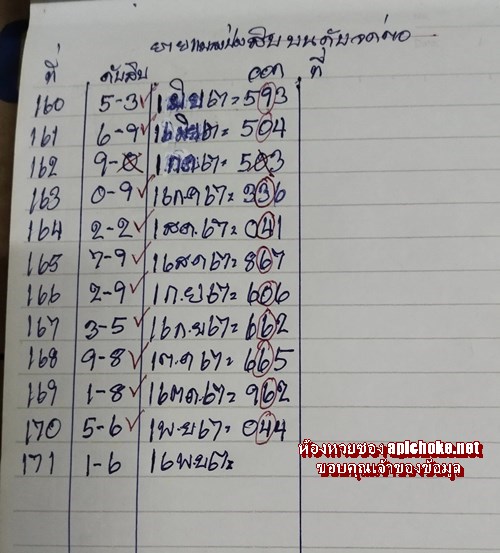 ที่ ดับสิบ ออก ที่
160 5-3 1 มิย 67 = 593
161 6-9 16 มิย 67 = 504
162 9-8 1 กค 67 = 503
163 0-9 16 ก.ค 67 = 336
164 2-2 1 ส.ค. 67 = 041
165 7-9 16 ส.ค 67 = 867
166 2-9 1 ก.ย 67 = 606
167 3-5 16 ก.ย 67 = 662
168 9-8 1 ต.ค 67 = 665
169 1-8 16 ต.ค 67 = 962
170 5-6 1 พ.ย 67 = 044
171 1-6 16 พย 67 =
ห้องหวยซอง apichoke.net
ขอบคุณเจ้าของข้อมูล